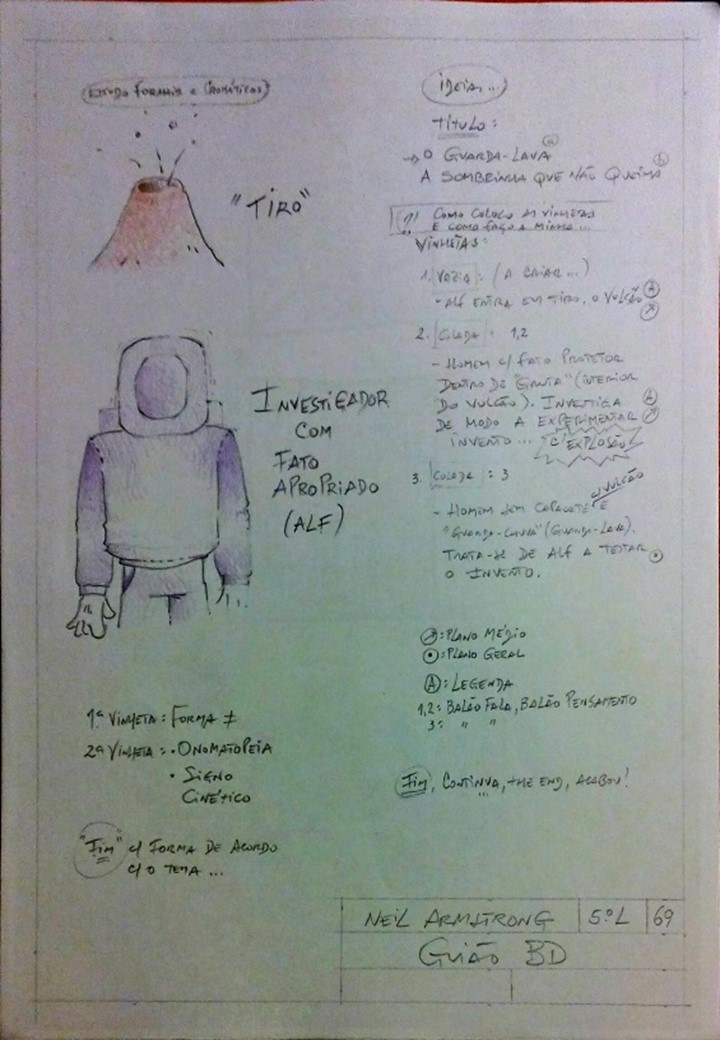 ESTUDO FORMAIS e CROMÁTICOS
"TIRO"
INVESTIGADOR
COM
FATO
APROPRIADO
(ALF)
1ª VINHETA: FORMA ≠
2ª VINHETA: • ONOMATOPEIA
• SIGNO
CINÉTICO
"FIM" C/ FORMA DE ACORDO
C/ O TEMA ...
IDEIAS...
TÍTULO:
→ O GUARDA-LAVA (a)
A SOMBRINHA QUE NÃO QUEIMA (b)
COMO COLOCO AS VINHETAS
E COMO FAÇO A MINHA...
VINHETAS:
1. VAZIA: (A CRIAR...)
- ALF ENTRA EM TIRO, O VULCÃO (A)
(↗)
2. COLADA: 1,2
- HOMEM C/ FATO PROTETOR
DENTRO DE "GRUTA" (INTERIOR
DO VULCÃO). INVESTIGA (A)
DE MODO A EXPERIMENTAR (↗)
INVENTO... C/ EXPLOSÃO
3. COLADA: 3
- HOMEM SEM CAPACETE E C/ VULCÃO
"GUARDA-CHUVA" (GUARDA-LAVA).
TRATA-SE DE ALF A TESTAR (•)
O INVENTO.
(↗): PLANO MÉDIO
(•): PLANO GERAL
(A): LEGENDA
1,2: BALÃO FALA, BALÃO PENSAMENTO
3: " "
FIM, CONTINUA, THE END, ACABOU!
...
NEIL ARMSTRONG 5ºL 69
GUIÃO BD